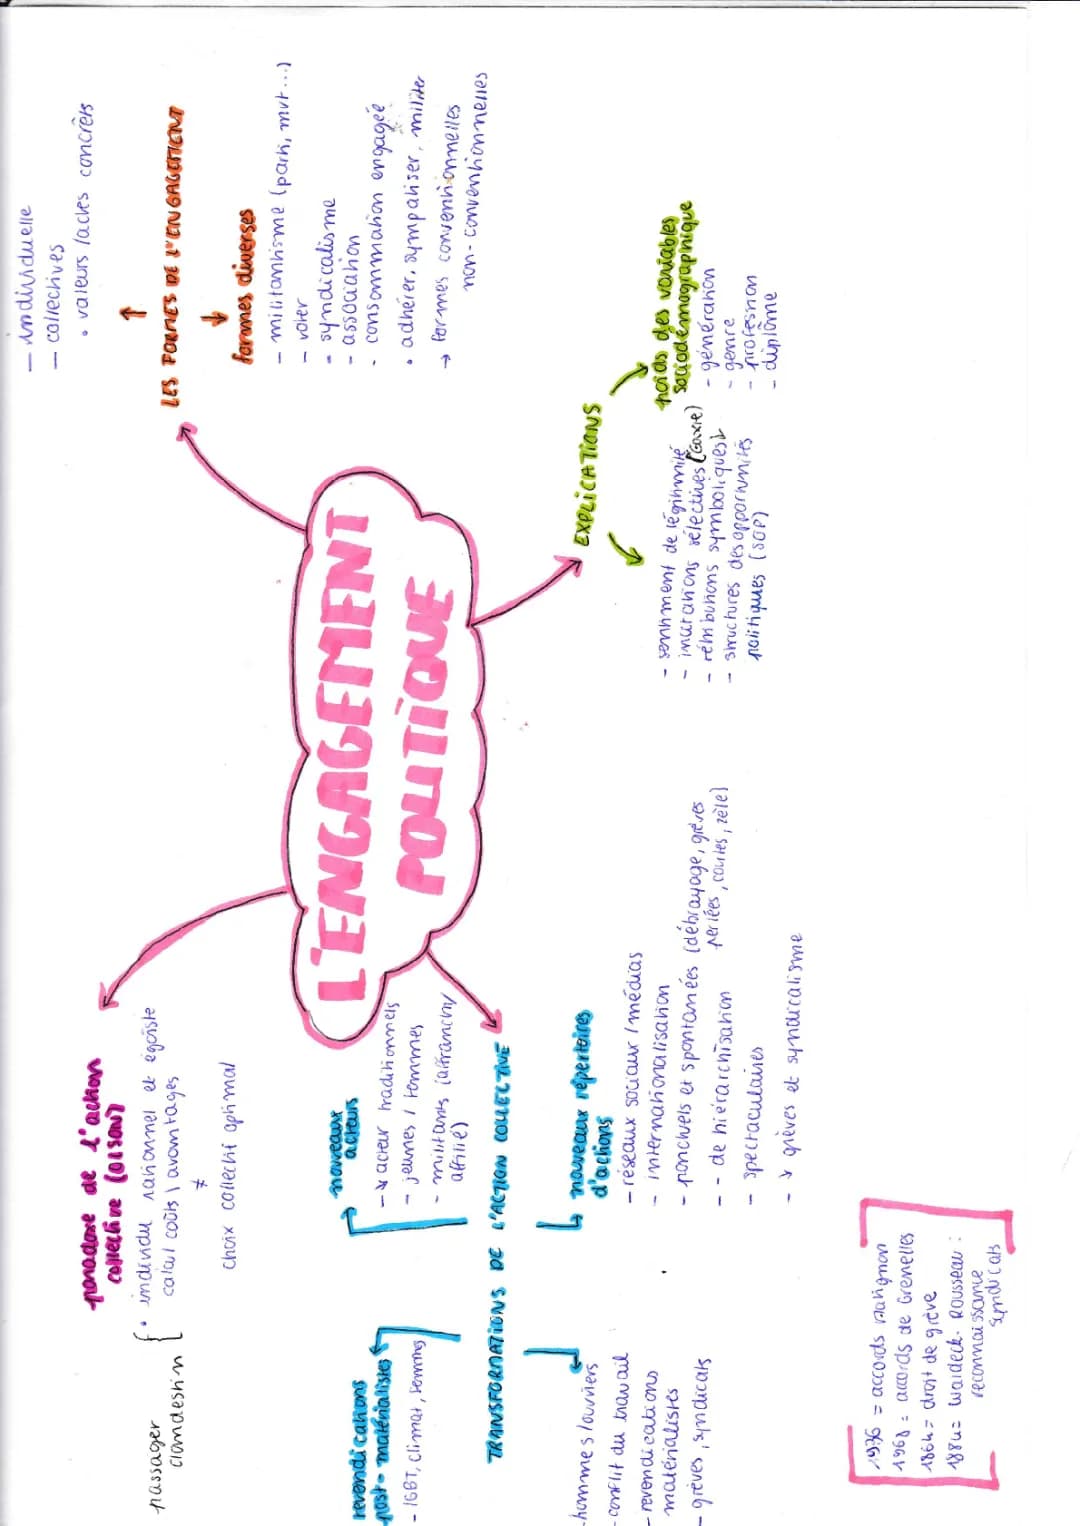 L'ENGAGEMENT
POLITIQUE
paradoxe de l'action
collective (OLSON)
passager
clandestin
• individu rationnel et égoïste
calcul coûts \ avantages
≠
choix collectif optimal
- individuelle
- collectives
• valeurs /actes concrets
↑
LES FORMES DE L'ENGAGEMENT
↓
formes diverses
- militantisme (parti, mvt...)
- voter
- syndicalisme
- association
- consommation engagée
• adhérer, sympatiser, militer
→ formes conventionnelles
non-conventionnelles
EXPLICATIONS
- sentiment de légitimité
- incitations sélectives
- rétributions symboliques (Gaxie)
- structures des opportunités
politiques (SOP)
poids des variables
sociodémographique
- génération
- genre
- profession
- diplôme
TRANSFORMATIONS DE L'ACTION COLLECTIVE
revendications
post-matérialistes
- LGBT, climat, femmes
nouveaux
acteurs
- ↘ acteur traditionnels
- jeunes / femmes
- militants (affranchi/
affilié)
- hommes/ouvriers
- conflit du travail
- revendications
matérialistes
- grèves, syndicats
nouveaux répertoires
d'actions
- réseaux sociaux / médias
- internationalisation
- ponctuels et spontanées (débrayage, grèves
perlées, courtes, zèle)
- - de hiérarchisation
- spectaculaires
- ↘ grèves et syndicalisme
1936 = accords matignon
1968 = accords de Grenelles
1864 = droit de grève
1884 = Waldeck-Rousseau :
reconnaissance
syndicats